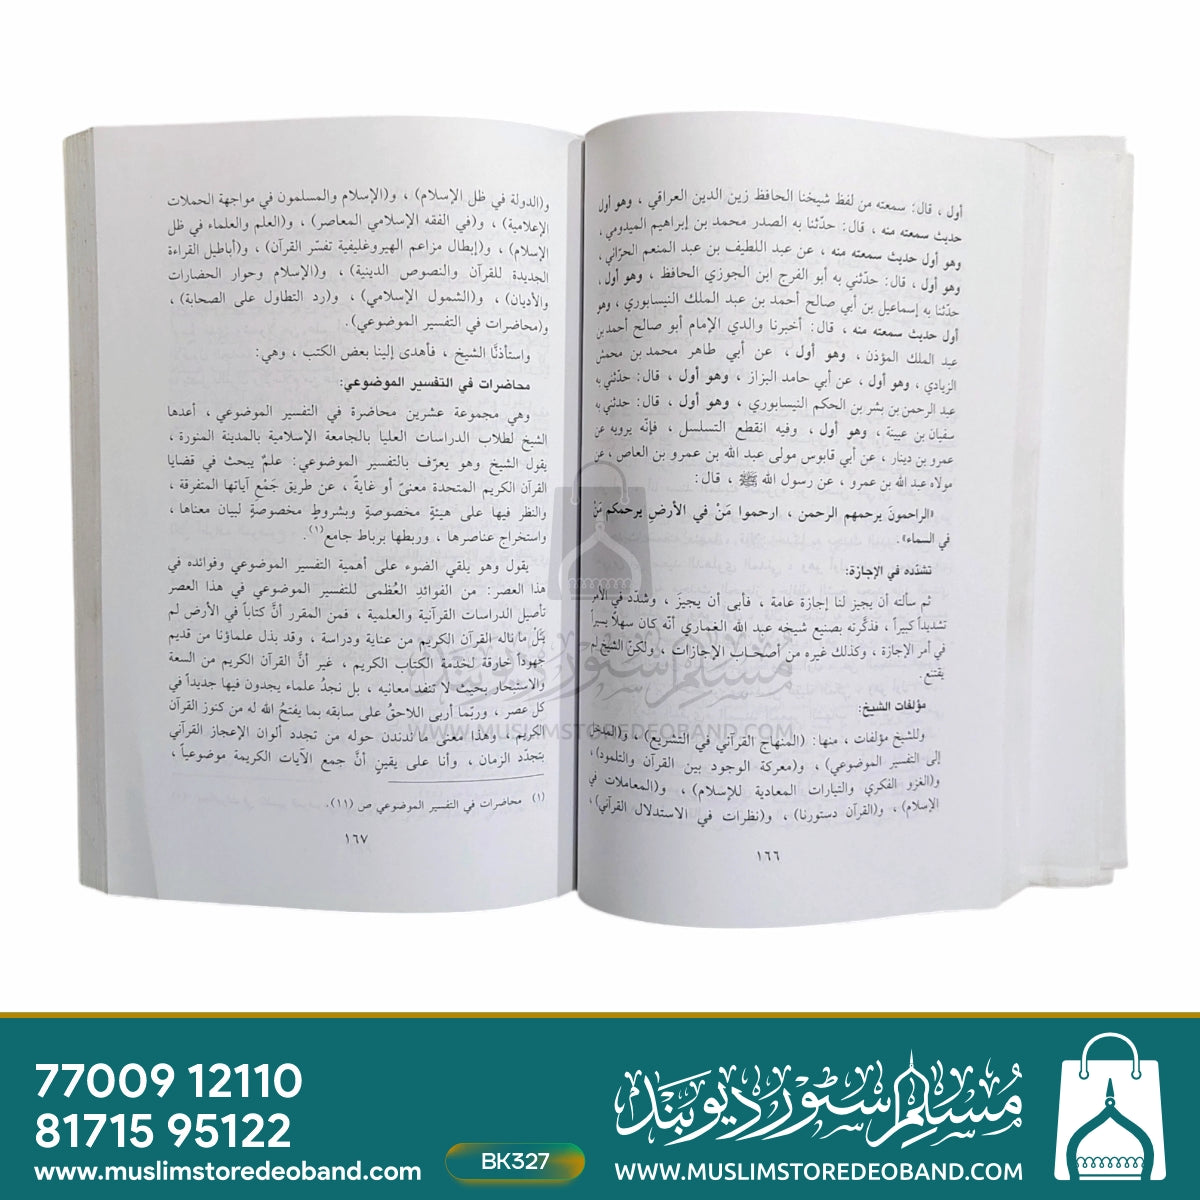 أول ، قال: سمعته من لفظ شيخنا الحافظ زين الدين العراقي ، وهو أول
حديث سمعته منه ، قال: حدّثنا به الصدر محمد بن إبراهيم الميدومي ،
وهو أول حديث سمعته منه ، عن عبد اللطيف بن عبد المنعم الحرّاني ،
وهو أول ، قال: حدّثني به أبو الفرج ابن الجوزي الحافظ ، وهو أول ،
حدّثنا به إسماعيل بن أبي صالح أحمد بن عبد الملك النيسابوري ، وهو
أول حديث سمعته منه ، قال: أخبرنا والدي الإمام أبو صالح أحمد بن
عبد الملك المؤذن ، وهو أول ، عن أبي طاهر محمد بن محمش
الزيادي ، وهو أول ، عن أبي حامد البزاز ، وهو أول ، قال: حدّثني به
عبد الرحمن بن بشر بن الحكم النيسابوري ، وهو أول ، قال: حدثني به
سفيان بن عيينة ، وهو أول ، وفيه انقطع التسلسل ، فإنّه يرويه عن
عمرو بن دينار ، عن أبي قابوس مولى عبد الله بن عمرو بن العاص ، عن
مولاه عبد الله بن عمرو ، عن رسول الله ﷺ ، قال:
«الراحمونَ يرحمهم الرحمن ، ارحموا مَنْ في الأرضِ يرحمكم مَنْ
في السماء».
تشدّده في الإجازة:
ثم سألته أن يجيز لنا إجازة عامة ، فأبى أن يجيز ، وشدّد في الأمر
تشديداً كبيراً ، فذكّرته بصنيع شيخه عبد الله الغماري أنّه كان سهلاً يسيراً
في أمر الإجازة ، وكذلك غيره من أصحاب الإجازات ، ولكن الشيخ لم
يقتنع.
مؤلفات الشيخ:
وللشيخ مؤلفات ، منها: (المنهاج القرآني في التشريع) ، و(المدخل
إلى التفسير الموضوعي) ، و(معركة الوجود بين القرآن والتلمود) ،
و(الغزو الفكري والتيارات المعادية للإسلام) ، و(المعاملات في
الإسلام) ، و(القرآن دستورنا) ، و(نظرات في الاستدلال القرآني) ،
١٦٦
و(الدولة في ظل الإسلام) ، و(الإسلام والمسلمون في مواجهة الحملات
الإعلامية) ، و(في الفقه الإسلامي المعاصر) ، و(العلم والعلماء في ظل
الإسلام) ، و(إبطال مزاعم الهيروغليفية تفسّر القرآن) ، و(أباطيل القراءة
الجديدة للقرآن والنصوص الدينية) ، و(الإسلام وحوار الحضارات
والأديان) ، و(الشمول الإسلامي) ، و(رد التطاول على الصحابة) ،
و(محاضرات في التفسير الموضوعي).
واستأذنَّا الشيخ ، فأهدى إلينا بعض الكتب ، وهي:
محاضرات في التفسير الموضوعي:
وهي مجموعة عشرين محاضرة في التفسير الموضوعي ، أعدها
الشيخ لطلاب الدراسات العليا بالجامعة الإسلامية بالمدينة المنورة ،
يقول الشيخ وهو يعرّف بالتفسير الموضوعي: علمٌ يبحث في قضايا
القرآن الكريم المتحدة معنىً أو غايةً ، عن طريق جَمْع آياتها المتفرقة ،
والنظر فيها على هيئةٍ مخصوصةٍ وبشروطٍ مخصوصةٍ لبيان معناها ،
واستخراج عناصرها ، وربطها برباط جامع(١).
يقول وهو يلقي الضوء على أهمية التفسير الموضوعي وفوائده في
هذا العصر: من الفوائدِ العُظمى للتفسير الموضوعي في هذا العصر
تأصيل الدراسات القرآنية والعلمية ، فمن المقرر أنَّ كتاباً في الأرض لم
يَنَلْ ما ناله القرآن الكريم من عناية ودراسة ، وقد بذل علماؤنا من قديم
جهوداً خارقة لخدمة الكتاب الكريم ، غير أنَّ القرآن الكريم من السعة
والاستبحار بحيث لا تنفد معانيه ، بل نجدُ علماء يجدون فيها جديداً في
كل عصر ، وربّما أربى اللاحقُ على سابقه بما يفتحُ الله له من كنوز القرآن
الكريم ، وهذا معنى ما ندندن حوله من تجدد ألوان الإعجاز القرآني
بتجدّد الزمان ، وأنا على يقينٍ أنَّ جمع الآيات الكريمة موضوعياً ،
(١) محاضرات في التفسير الموضوعي ص (١١).
١٦٧
مسلم سٹور دیوبند
WWW.MUSLIMSTOREDEOBAND.COM
77009 12110
81715 95122
www.muslimstoredeoband.com
BK327
مسلم سٹور دیوبند
WWW.MUSLIMSTOREDEOBAND.COM